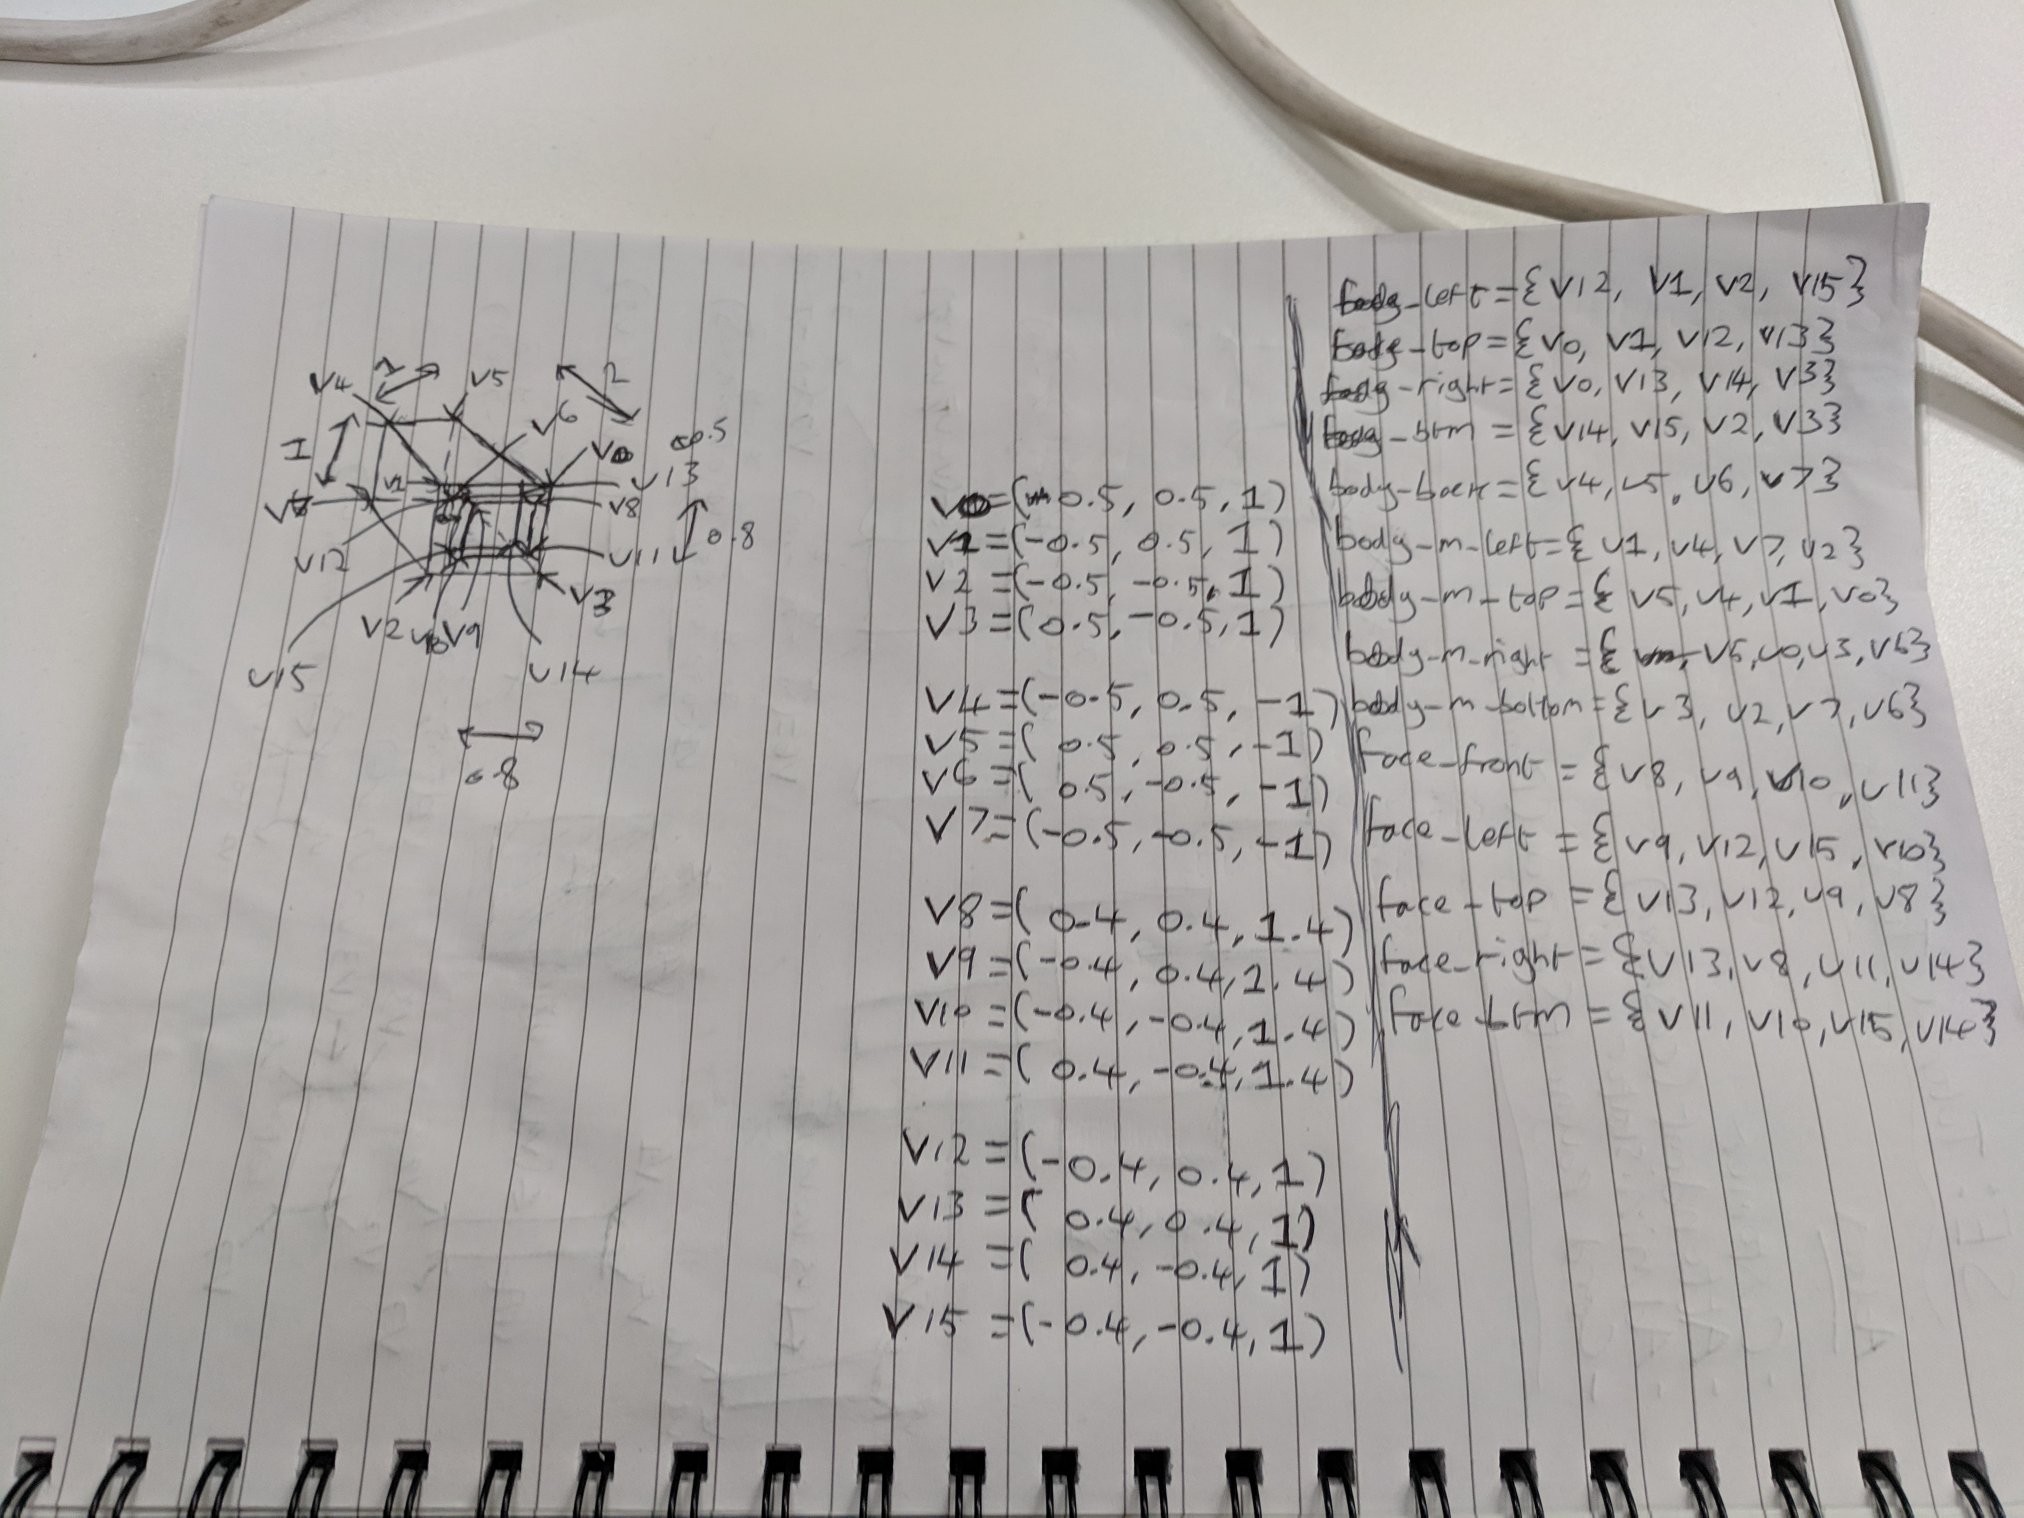 V4
1
V5
2
V6
1
V0
0.5
V1
V13
V8
0.8
V12
V11
V3
V2
V10
V9
V15
V14
0.8
V0=(0.5, 0.5, 1)
V1=(-0.5, 0.5, 1)
V2=(-0.5, -0.5, 1)
V3=(0.5, -0.5, 1)
V4=(-0.5, 0.5, -1)
V5=( 0.5, 0.5, -1)
V6=( 0.5, -0.5, -1)
V7=(-0.5, -0.5, -1)
V8=( 0.4, 0.4, 1.4)
V9=(-0.4, 0.4, 1.4)
V10=(-0.4, -0.4, 1.4)
V11=( 0.4, -0.4, 1.4)
V12=(-0.4, 0.4, 1)
V13=( 0.4, 0.4, 1)
V14=( 0.4, -0.4, 1)
V15=(-0.4, -0.4, 1)
body-left={V12, V1, V2, V15}
body-top={V0, V1, V12, V13}
body-right={V0, V13, V14, V3}
body-btm={V14, V15, V2, V3}
body-back={V4, V5, V6, V7}
body-m-left={V1, V4, V7, V2}
body-m-top={V5, V4, V1, V0}
body-m-right={V5, V0, V3, V6}
body-m-bottom={V3, V2, V7, V6}
face-front={V8, V9, V10, V11}
face-left={V9, V12, V15, V10}
face-top={V13, V12, V9, V8}
face-right={V13, V8, V11, V14}
face-btm={V11, V10, V15, V14}